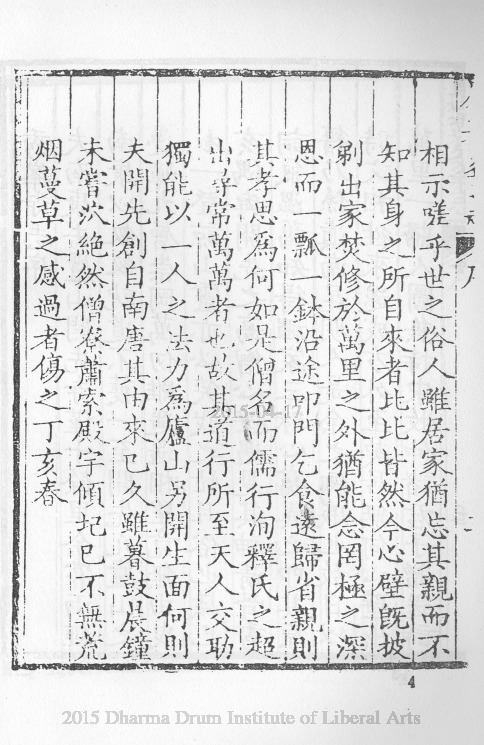 相示嗟乎世之俗人雖居家猶忘其親而不
知其身之所自來者比比皆然今心壁旣披
剃出家焚修於萬里之外猶能念罔極之深
恩而一瓢一鉢沿途叩門乞食遠歸省親則
其孝思爲何如是僧名而儒行洵釋氏之超
出尋常萬萬者也故其道行所至天人交助
獨能以一人之法力爲廬山另開生面何則
夫開先創自南唐其由來已久雖暮鼓晨鐘
未嘗泯絶然僧寮蕭索殿宇傾圮已不無荒
烟蔓草之感過者傷之丁亥春
序
2015-04-17
4
2015 Dharma Drum Institute of Liberal Arts